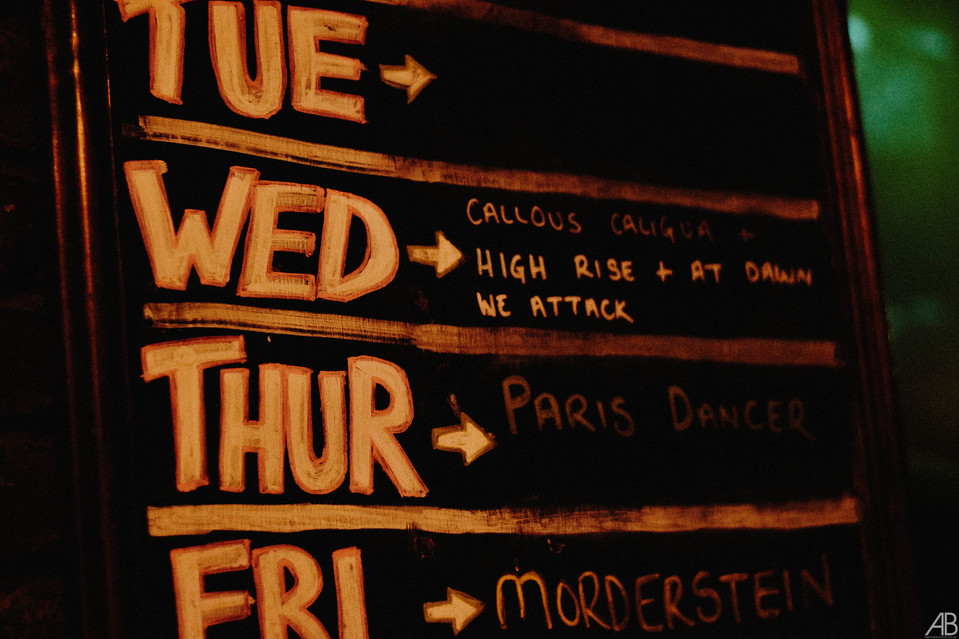 TUE
WED
CALLOUS CALIGUA +
HIGH RISE + AT DAWN
WE ATTACK
THUR
PARIS DANCER
FRI
MORDERSTEIN
AB